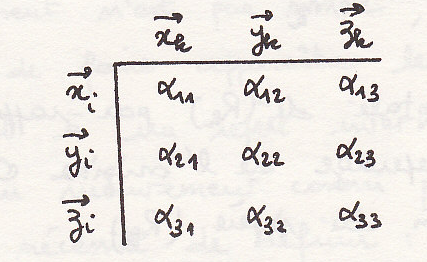 x⃗k y⃗k z⃗k
x⃗i α11 α12 α13
y⃗i α21 α22 α23
z⃗i α31 α32 α33